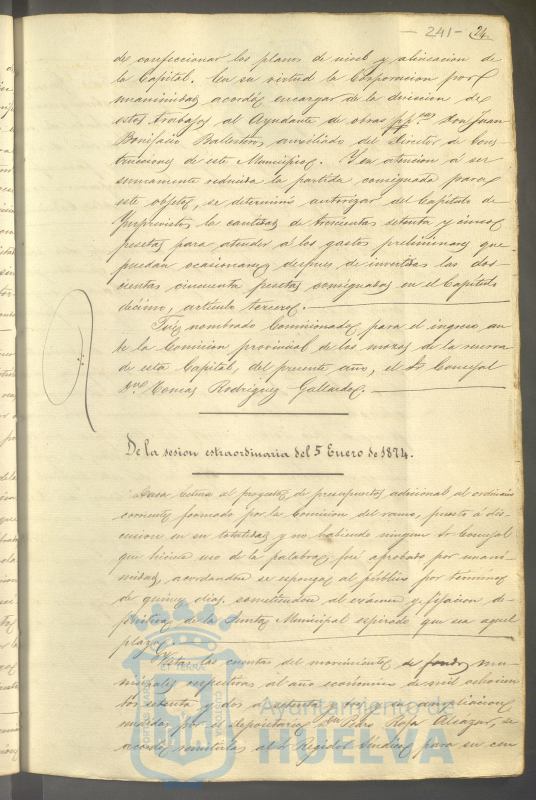 - 241 - 24
de confeccionar los planos de nivel y alineacion de
la Capital. En su virtud la Corporacion por
unanimidad acordó encargar de la direccion de
estos trabajos al Ayudante de obras pp.cas Don Juan
Bonifacio Ballentin, auxiliado del Director de Cons
trucciones de este Municipio. Y en atencion á ser
sumamente reducida la partida consignada para
este objeto, se determinó autorizar del Capitulo de
Ymprevistos la cantidad de trescientas setenta y cinco
pesetas para atender á los gastos preliminares que
puedan ocasionarse, despues de invertidas las dos-
cientas cincuenta pesetas consignadas en el Capitulo
décimo, articulo tercero.
Fué nombrado Comisionado para el ingreso an
te la Comision provincial de los mozos de la reserva
de esta Capital, del presente año, el Sr Concejal
Dn Tomas Rodriguez Gallardo.
De la sesion estraordinaria del 5 Enero de 1874.
Dada lectura al proyecto de presupuesto adicional al ordinario
corriente formado por la Comision del ramo, puesto á dis-
cusion en su totalidad y no habiendo ningun Sr Concejal
que hiciese uso de la palabra, fué aprobado por unani-
midad, acordandose se esponga al público por término
de quince dias, sometiendose al exámen y fijacion de-
finitiva de la Junta Municipal espirado que sea aquel
plazo.
Vistas las cuentas del movimiento de fondos mu-
nicipales respectivas al año económico de mil ochocien
tos setenta y dos á setenta y tres y su ampliacion,
rendidas por el depositario Dn Pedro Rofa Alcazar, se
acordó remitirlas al Sr Regidor Sindico para su cen
ET TERRA
CUSTODIA
Ayuntamiento de
HUELVA